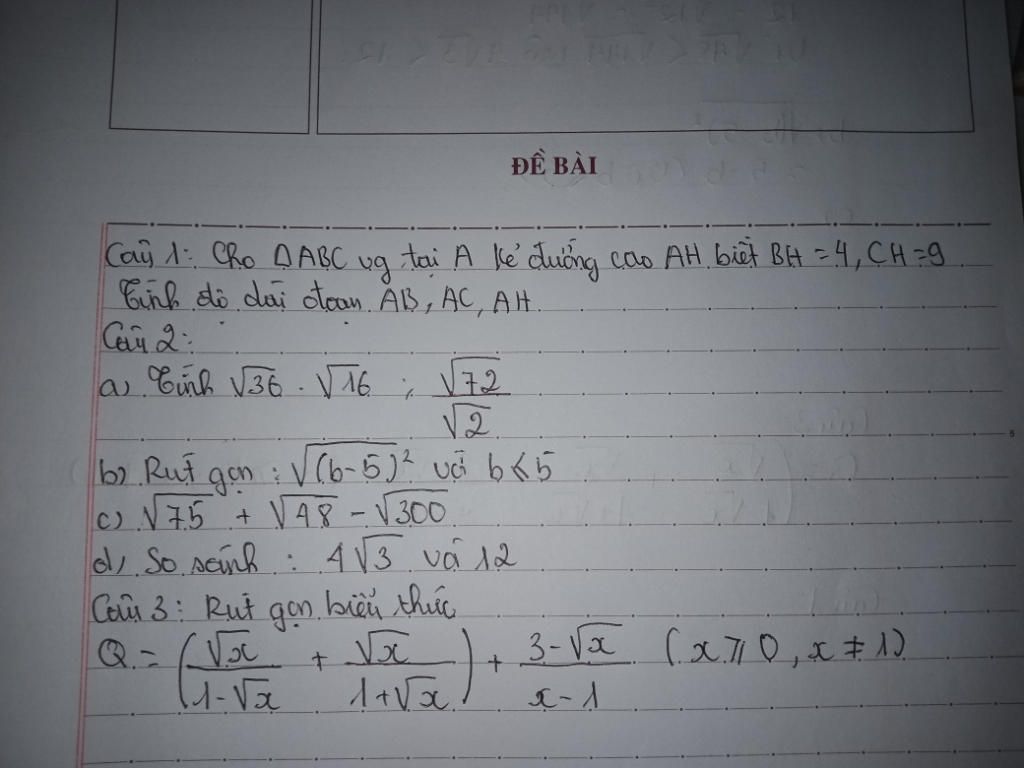 ĐỀ BÀI
Câu 1: Cho ΔABC vg tại A kẻ đường cao AH biết BH = 4, CH = 9
Tính độ dài đoạn AB, AC, AH
Câu 2:
a) Tính √36 . √16 ; √72 / √2
b) Rút gọn : √(b-5)² với b ≤ 5
c) √75 + √48 - √300
d) So sánh : 4√3 và 12
Câu 3: Rút gọn biểu thức
Q = (√x / (1-√x) + √x / (1+√x)) + (3-√x) / (x-1) (x ≥ 0, x ≠ 1)